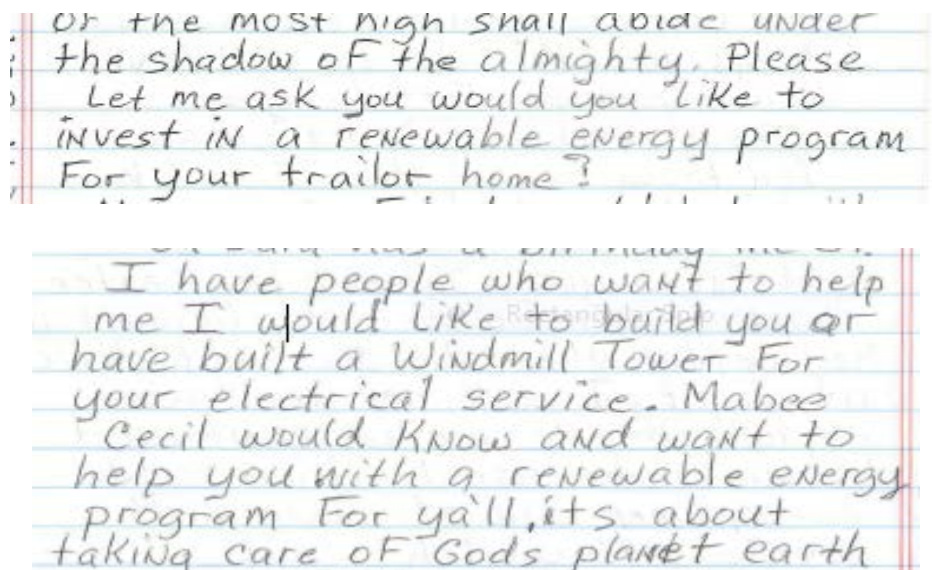 of the most high shall abide under
the shadow of the almighty. Please
Let me ask you would you like to
invest in a renewable energy program
For your trailor home?
I have people who want to help
me I would Like to build you or
have built a Windmill Tower For
your electrical service. Mabee
Cecil would Know and want to
help you with a renewable energy
program For ya'll, its about
taking care of Gods planet earth